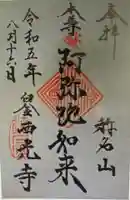 奉拝
称名山
本尊
阿弥陀如来
西光寺
令和五年
八月十六日